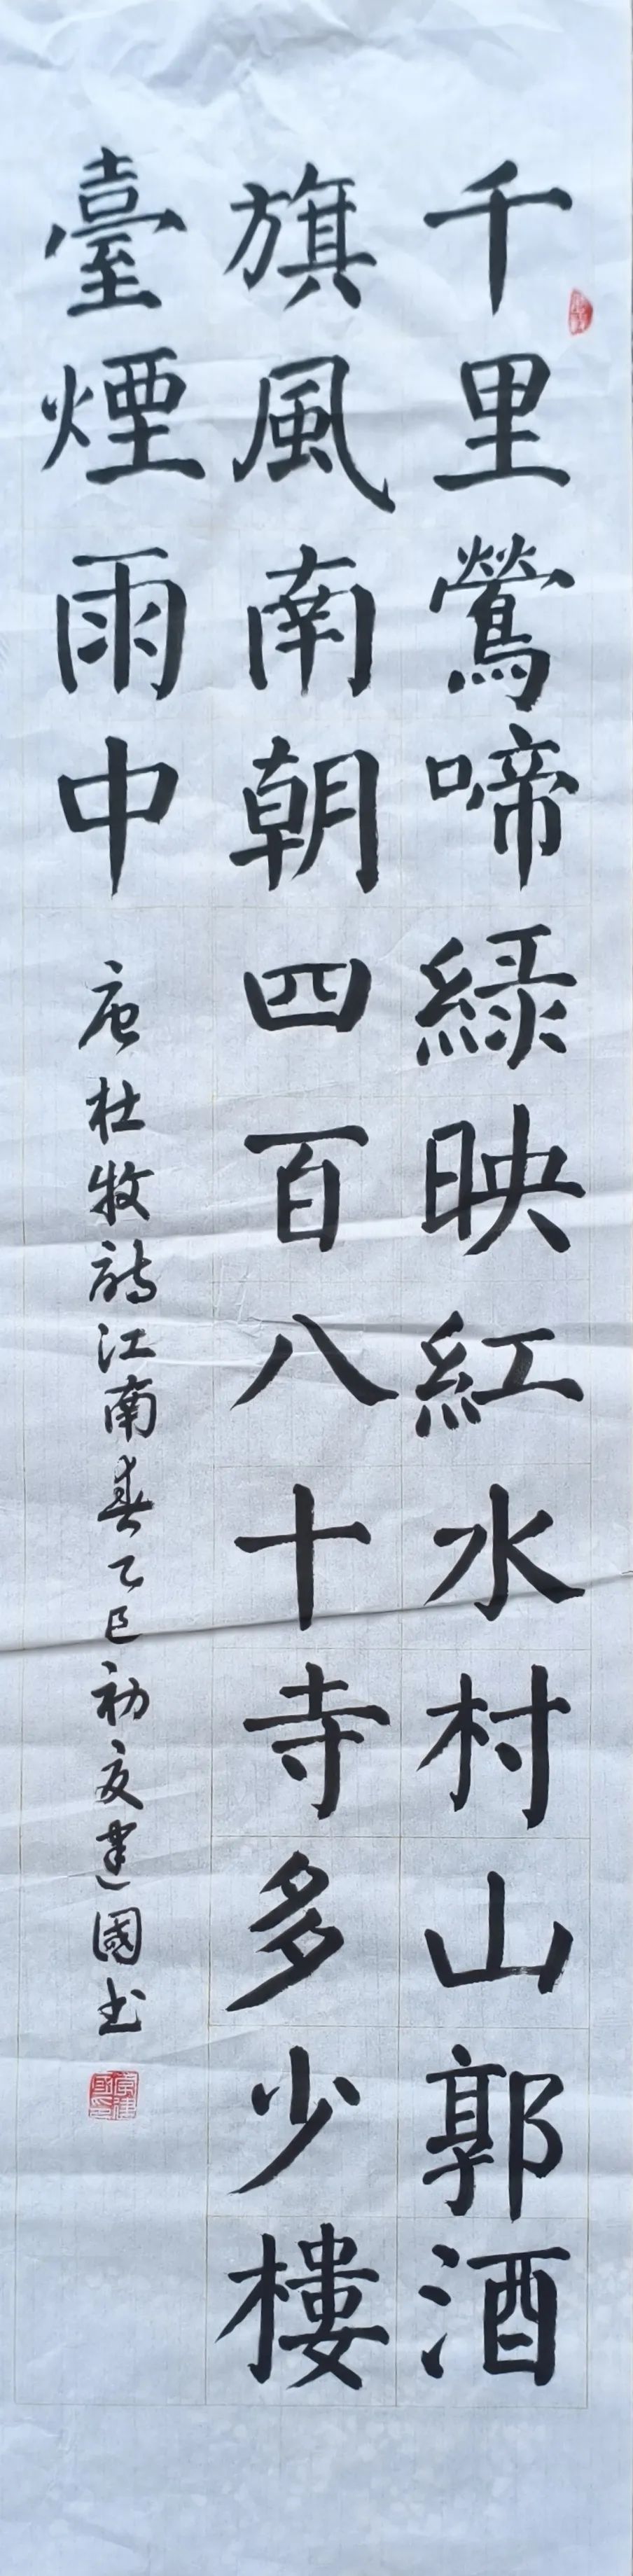 千里鶯啼緑映紅水村山郭酒
旗風南朝四百八十寺多少樓
臺煙雨中
唐杜牧詩江南春乙巳初夏建國书